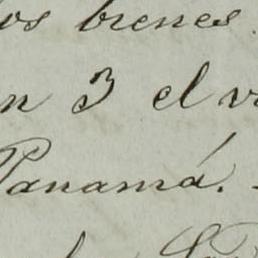 os bienes.
n 3 el v
Panamá.